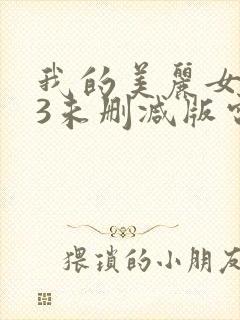 我的美麗女
3未删减版
猥琐的小朋友